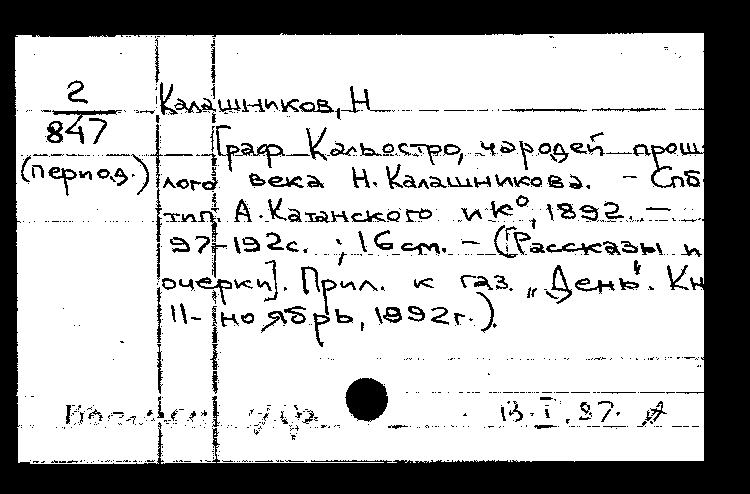 2
847
(период.)
Калашников, Н
Граф Кальостро, чародей прош
лого века Н. Калашникова. - Спб
тип. А. Катанского и К°, 1892. -
97-192с. ; 16 см. - ([Рассказы и
очерки]. Прил. к газ. „День". Кн
11- ноябрь, 1892г.).
13.I.87.